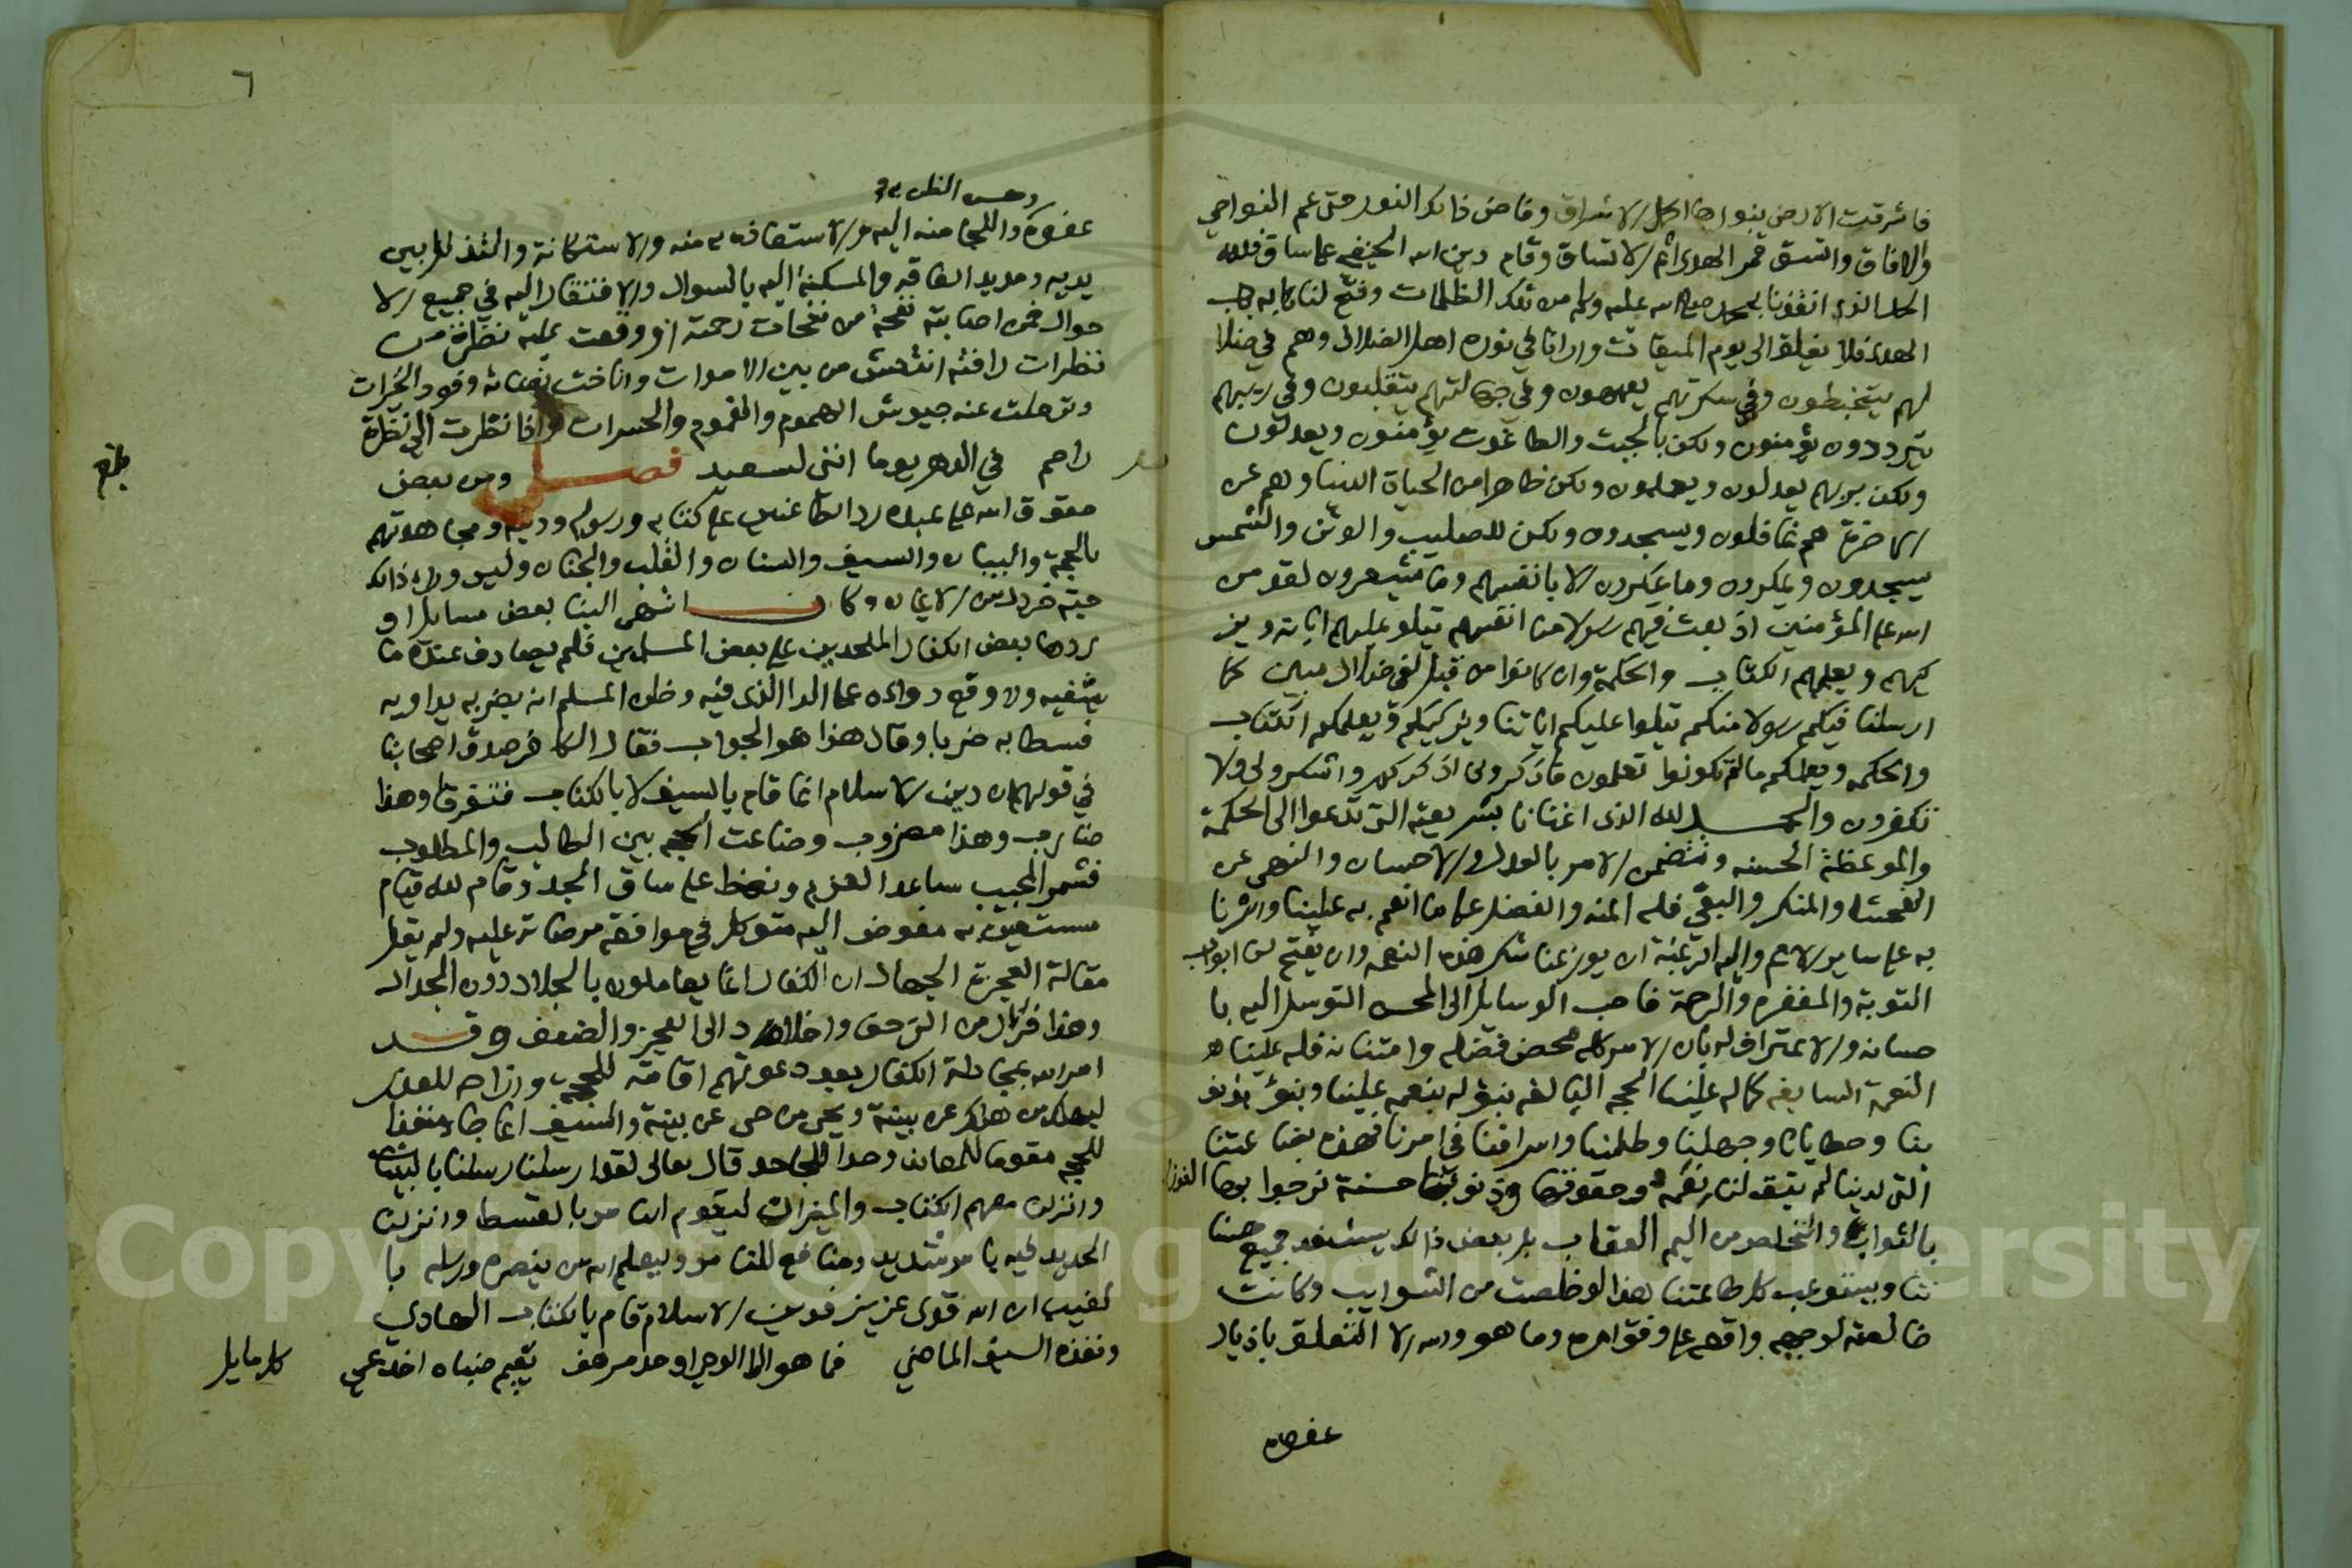 فاشرقت الارض بنورها اكمل الاشراق وفاض ذلك النور حتى عم النواحي
والافاق واتسق قمر الهدى اتم الاتساق وقام دين الله الحنيفي على ساق فلله
الحمد الذي انقذنا بمحمد صلى الله عليه وسلم من تلك الظلمات وفتح لنا به باب
الهدى فلا يغلق الى يوم الميقات وارانا في نوره اهل الضلال وهم في ضلا
لهم يتخبطون وفي سكرتهم يعمهون وفي جهالتهم يتقلبون وفي ريبهم
يترددون يؤمنون ولكن بالجبت والطاغوت يؤمنون ويعدلون
ولكن بربهم يعدلون ويعلمون ولكن ظاهرا من الحياة الدنيا وهم عن
الاخرة هم غافلون ويسجدون ولكن للصليب والوثن والشمس
يسجدون ويمكرون وما يمكرون الا بانفسهم وما يشعرون لقد من
الله على المؤمنين اذ بعث فيهم رسولا من انفسهم يتلو عليهم اياته ويز
كيهم ويعلمهم الكتاب والحكمة وان كانوا من قبل لفي ضلال مبين كما
ارسلنا فيكم رسولا منكم يتلوا عليكم اياتنا ويزكيكم ويعلمكم الكتاب
والحكمه ويعلمكم ما لم تكونوا تعلمون فاذكروني اذكركم واشكروا لي ولا
تكفرون والحمد لله الذي اغنانا بشريعته التي تدعوا الى الحكمة
والموعظة الحسنه وتتضمن الامر بالعدل والاحسان والنهي عن
الفحشا والمنكر والبغي فله المنه والفضل على ما انعم به علينا واثرنا
به على ساير الامم واليه الرغبة ان يوزعنا شكر هذه النعمه وان يفتح لنا ابواب
التوبة والمغفره والرحمة فاحب الوسايل الى المحسن التوسل اليه با
حسانه والاعتراف له بان الامر كله محض فضله وامتنانه فله علينا
النعمة السابغه كما له علينا الحجه البالغه نبؤ له بنعمه علينا ونبؤ بذنو
بنا وخطايانا وجهلنا وظلمنا واسرافنا في امرنا فهذه بضاعتنا
التي لدينا لم تبق لنا نعمه وحقوقها وذنوبنا حسنة نرجوا بها الفوز
بالثواب والتخلص من اليم العقاب بل بعض ذلك يستنفد جميع حسنا
تنا ويستوعب كل طاعتنا هذا لو خلصت من الشوايب وكانت
خالصة لوجهه واقعه على وفق امره وما هو والله الا التعلق باذيال
عفوه
وحسن الظن به
عفوه واللجا منه اليه والاستعاذه به منه والاستكانة والتذلل بين
يديه ومد يد الفاقه والمسكنه اليه بالسوال والافتقار اليه في جميع الا
حوال فمن اصابته نفحة من نفحات رحمته او وقعت عليه نظرة من
نظرات رافته انتعش من بين الاموات واناخت بفنائه وفود الخيرات
وترحلت عنه جيوش الهموم والغموم والحسرات واذا نظرت الي نظرة
راحم في الدهر يوما انني لسعيد فصل ومن بعض
حقوق الله على عبده رد الطاعنين على كتابه ورسوله ودينه ومجاهدتهم
بالحجة والبيان والسيف والسنان والقلب والجنان وليس وراء ذلك
حبة خردل من الايمان وكان انتهى الينا بعض مسايل او
ردها بعض الكفار الملحدين على بعض المسلمين فلم يصادف عنده ما
يشفيه ولا وقع دواءه على الدا الذي فيه وظن المسلم انه بضربه يداويه
فسطا به ضربا وقال هذا هو الجواب فقال الكافر صدق اصحابنا
في قولهم ان دين الاسلام انما قام بالسيف لا بالكتاب فتفرقا وهذا
ضارب وهذا مضروب وضاعت الحجة بين الطالب والمطلوب
فشمر المجيب ساعد العزم ونهض على ساق الجد وقام لله قيام
مستعين به مفوض اليه متوكل في موافقة مرضاته عليه ولم يقل
مقالة العجزة الجهال ان الكفار انما يعاملون بالجلاد دون الجدال
وهذا فرار من الزحف واخلاد الى العجز والضعف وقد
امر الله بمجادلة الكفار بعد دعوتهم اقامة للحجه وازاحه للعذر
ليهلك من هلك عن بينة ويحي من حي عن بينة والسيف انما جا منفذا
للحجه مقوما للمعاند وحدا للجاحد قال تعالى لقد ارسلنا رسلنا بالبينات
وانزلنا معهم الكتاب والميزان ليقوم الناس بالقسط وانزلنا
الحديد فيه باس شديد ومنافع للناس وليعلم الله من ينصره ورسله با
لغيب ان الله قوي عزيز فدين الاسلام قام بالكتاب الهادي
ونفذه السيف الماضي فما هو الا الوحي او حد مرهف تقيم ضباه اخدعي كل مايل